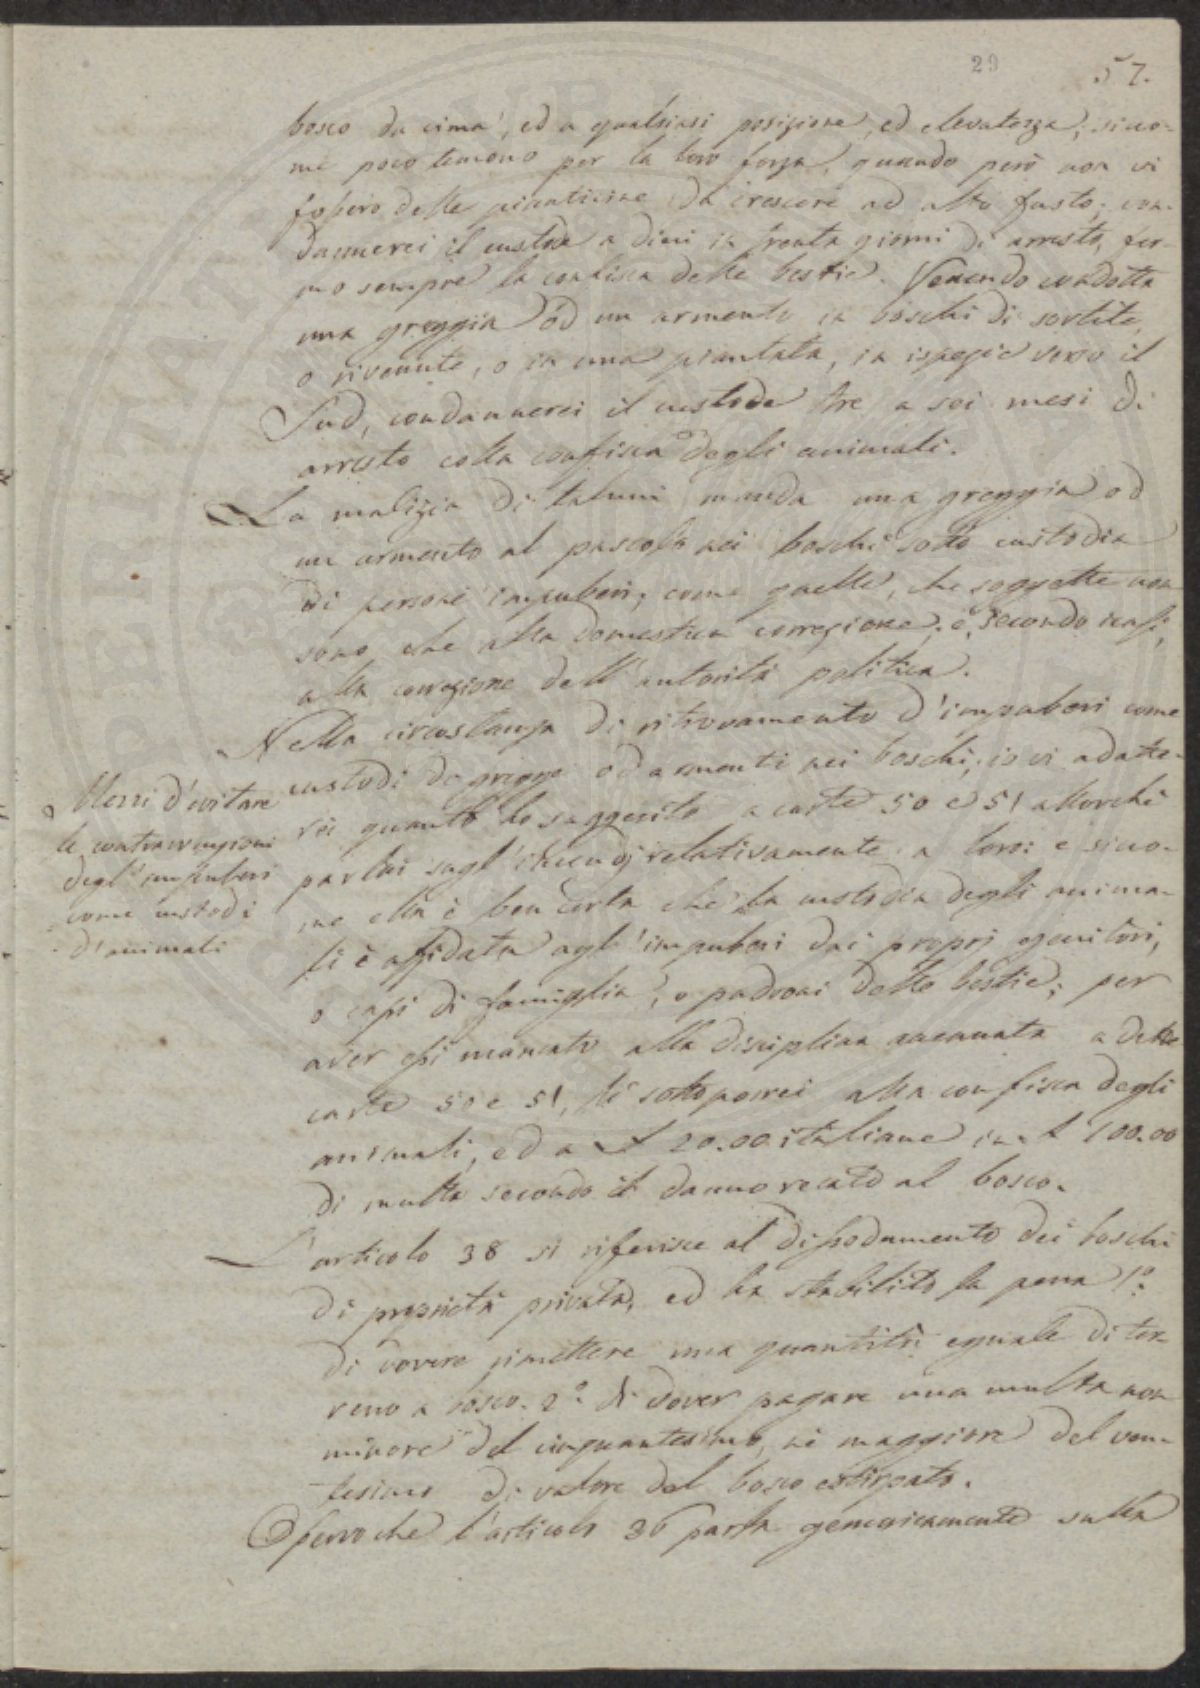 29
57.
bosco da cima, ed a qualsiasi posizione, ed elevatezza, sicco-
me poco temono per la loro forza, quando però non vi
fossero delle pianticine da crescere ad alto fusto; con-
dannerei il custode a dieci in trenta giorni di arresto, fer-
mo sempre la confisca delle bestie. Venendo condotta
una greggia od un armento in boschi di sortite,
o rivenute, o in una piantata, in ispezie verso il
Sud, condannerei il custode tre a sei mesi di
arresto colla confisca degli animali.
La malizia di taluni manda una greggia od
un armento al pascolo nei boschi sotto custodia
di persone impuberi; come quelle, che soggette non
sono che alla domestica correzione; e, secondo i casi,
alla correzione dell'autorità politica.
Nella circostanza di ritrovamento d'impuberi come
custodi di greggie od armenti nei boschi; io vi adatte-
rei quanto ho suggerito a carte 50 e 51 allorché
parlai sugl'incendj relativamente a loro: e sicco-
me ella è ben certa che la custodia degli anima-
li è affidata agl'impuberi dai proprj genitori,
o capi di famiglia, o padroni delle bestie; per
aver essi mancato alla disciplina accennata a dette
carte 50 e 51, li sottoporrei alla confisca degli
animali, ed a £ 20.00 italiane in £ 100.00
di multa secondo il danno recato al bosco.
Mezzi d'evitare
le contravvenzioni
degl'impuberi
come custodi
d'animali
L'articolo 38 si riferisce al dissodamento dei boschi
di proprietà privata, ed ha stabilito la pena 1°:
di dovere rimettere una quantità eguale di ter-
reno a bosco. 2° di dover pagare una multa non
minore del cinquantesimo, né maggiore del ven-
tesimo di valore del bosco estirpato.
Perroché l'articolo 36 parla genericamente sulla